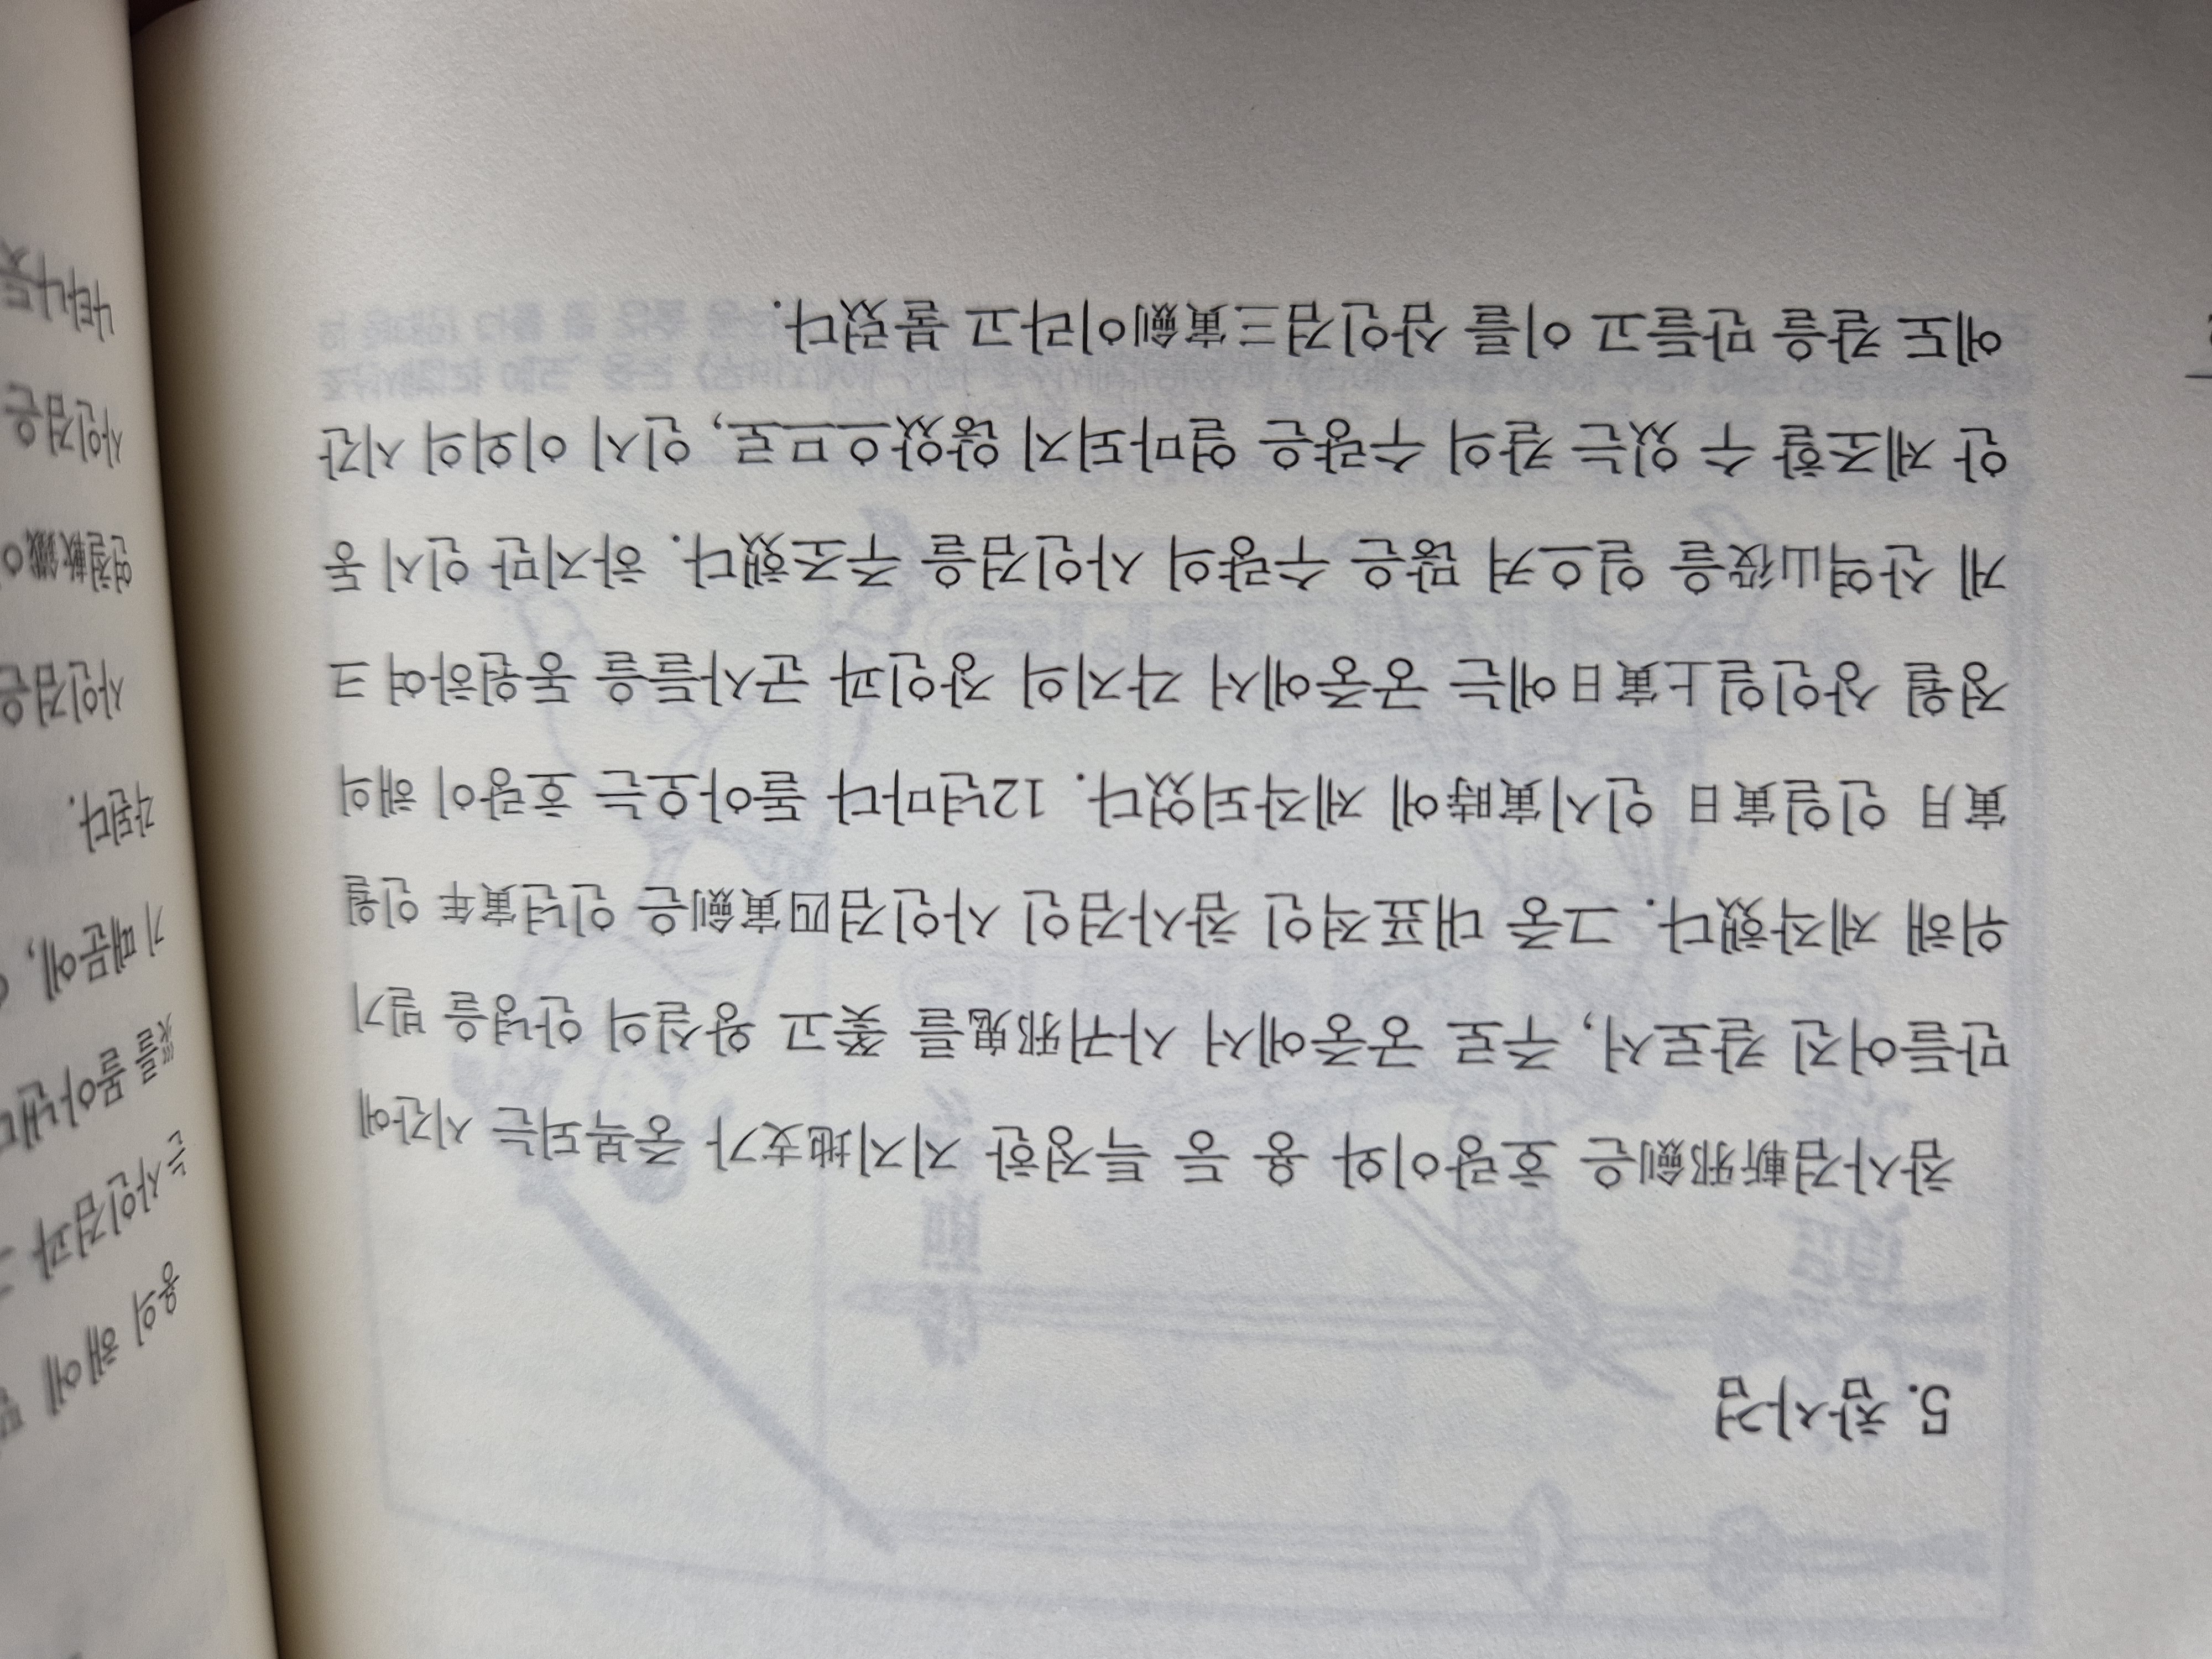 5. 참사검
참사검斬邪劍은 호랑이와 용 등 특정한 지지地支가 중복되는 시간에
만들어진 칼로서, 주로 궁중에서 사귀邪鬼를 쫓고 왕실의 안녕을 빌기
위해 제작했다. 그중 대표적인 참사검인 사인검四寅劍은 인년寅年 인월
寅月 인일寅日 인시寅時에 제작되었다. 12년마다 돌아오는 호랑이 해의
정월 상인일上寅日에는 궁중에서 각지의 장인과 군사들을 동원하여 크
게 산역山役을 일으켜 많은 수량의 사인검을 주조했다. 하지만 인시 동
안 제조할 수 있는 칼의 수량은 얼마되지 않았으므로, 인시 이외의 시간
에도 칼을 만들고 이를 삼인검三寅劍이라고 불렀다.
용의 해에
는 사인검과
를 몰아낸다
기 때문에,
각된다.
사인검은
연철軟鐵
사인검은